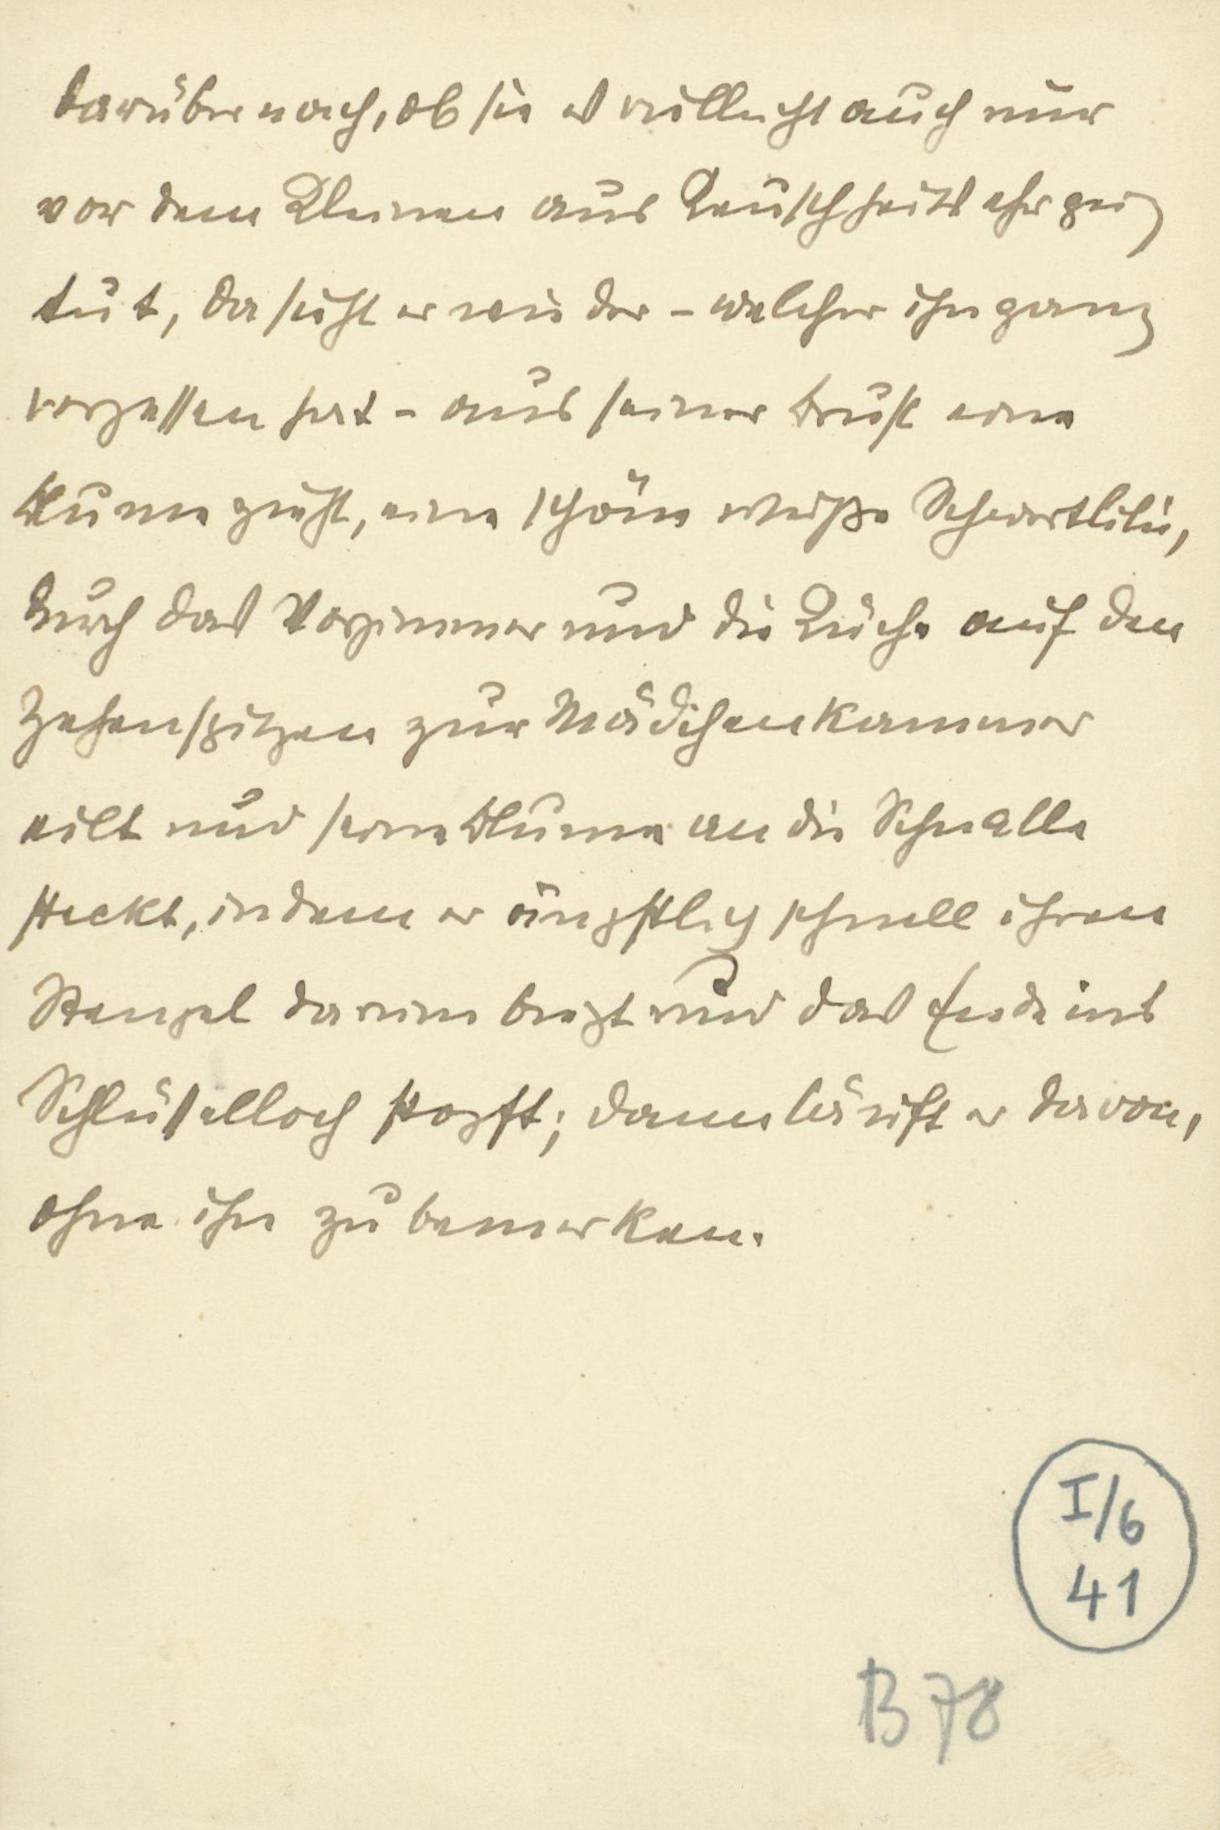 darüber nach, ob sie es vielleicht auch nur
vor dem Kleinen aus Keuschheitsehrgeiz
tut, da sieht er wie der – welcher ihn ganz
vergessen hat – aus seiner Brust eine
Blume zieht, eine schöne weiße Schwertlilie,
durch das Vorzimmer und die Küche auf den
Zehenspitzen zur Mädchenkammer
eilt und seine Blume an die Schnalle
steckt, indem er ängstlich schnell ihren
Stengel darum biegt und das Ende ins
Schlüsselloch stopft; dann läuft er davon,
ohne ihn zu bemerken.
I/6
41
B 78